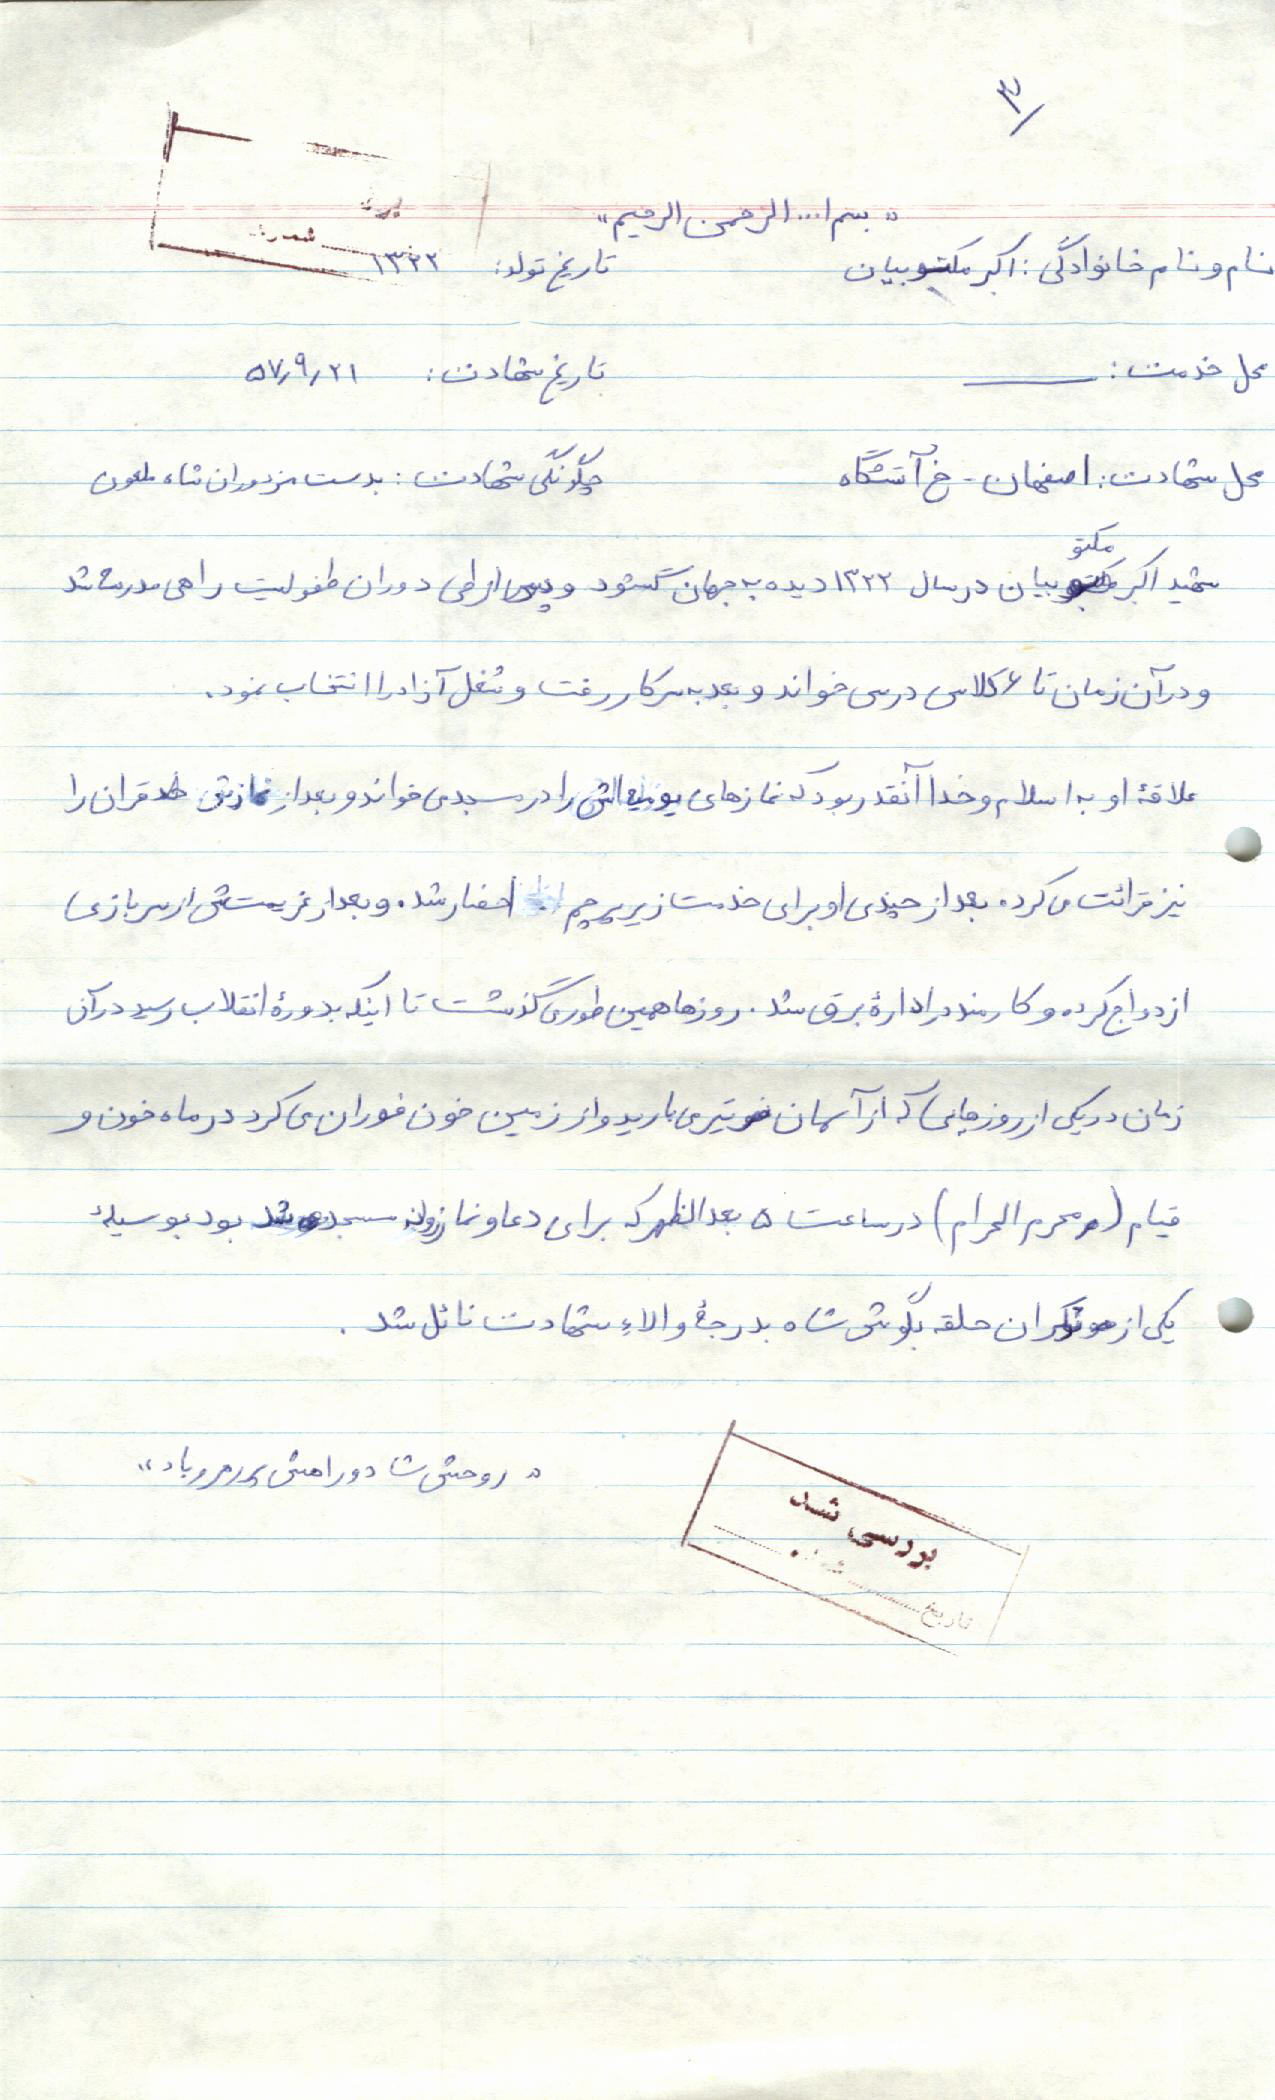 ۳
« بسم ا... الرحمن الرحیم »
نام و نام خانوادگی : اکبر مکتوبیان تاریخ تولد : ۱۳۲۲
محل خدمت : ـــــ تاریخ شهادت : ۵۷٫۹٫۲۱
محل شهادت : اصفهان - خ آتشگاه چگونگی شهادت : بدست مزدوران شاه ملعون
شهید اکبر مکتوبیان در سال ۱۳۲۲ دیده به جهان گشود و پس از طی دوران طفولیت راهی مدرسه شد
و در آن زمان تا ۶ کلاس درس خواند و بعد به سر کار رفت و شغل آزاد را انتخاب نمود .
علاقهٔ او به اسلام و خدا آنقدر بود که نمازهای یومیه‌اش را در مسجد می خواند و بعد از نمازش قران را
نیز قرائت می کرد . بعد از چندی او برای خدمت زیر پرچم احضار شد . و بعد از عزیمتش از سربازی
ازدواج کرده و کارمند در ادارهٔ برق شد . روزها همین طور می گذشت تا اینکه بدورهٔ انقلاب رسید در آن
زمان در یکی از روزهایی که از آسمان تیر می بارید و از زمین خون فوران می کرد در ماه خون و
قیام ( محرم الحرام ) در ساعت ۵ بعد الظهر که برای دعا و نماز روانه مسجد شده بود بوسیلهٔ
یکی از نوکران حلقه بگوش شاه بدرجهٔ والاءِ شهادت نائل شد .
« روحش شاد و راهش پر رهرو باد »
بررسی شد
تاریخ